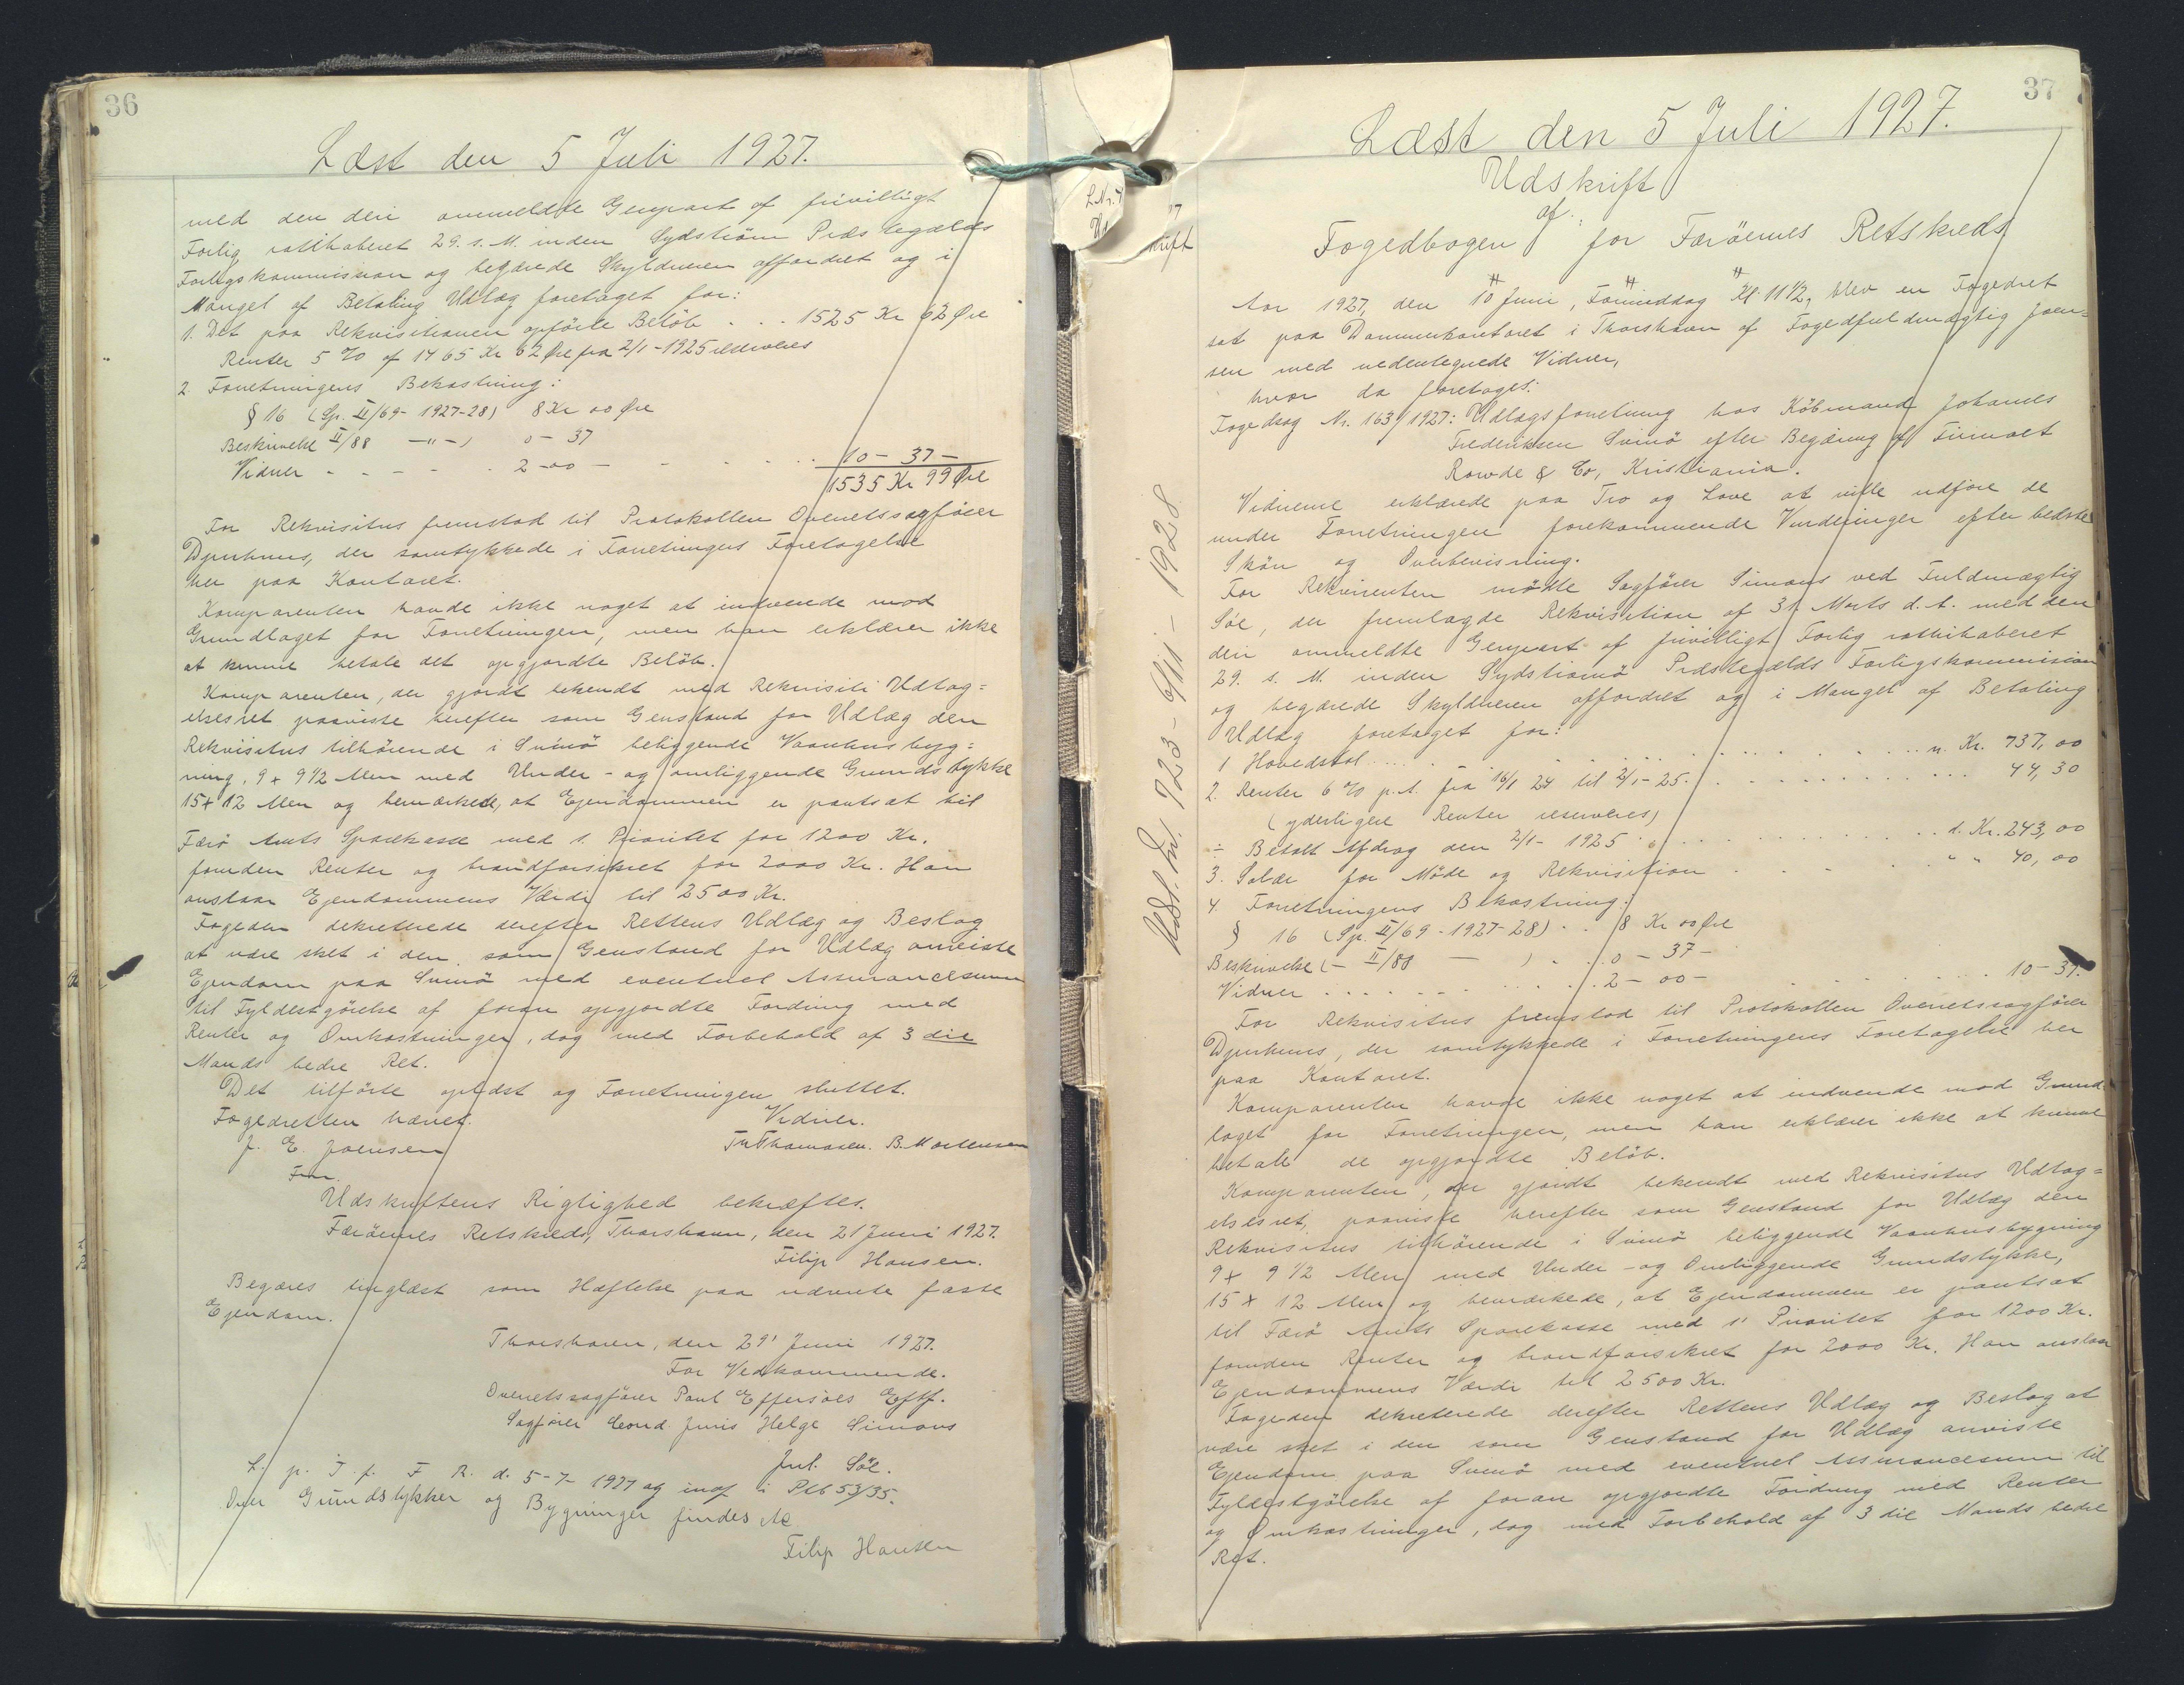 36
Læst den 5 Juli 1927.
med den deri ommeldte Genpart af frivilligt
Forlig ratihaberet 29. s. M. inden Sydstrømø Præstegælds
Forligskommission og begærede Skyldneren affordret og i
Mangel af Betaling Udlæg foretaget for:
1. Det paa Rekvisitionen opførte Beløb . . . 1525 Kr 62 Øre
Renter 5 % af 1465 Kr 62 Øre fra 2/1-1925 reserveres
2. Forretningens Bekostning:
§ 16 (Sp. II/69- 1927-28) 8 Kr 00 Øre
Beskrivelse II/88 —"—) 0 - 37
Vidner - - - - - 2 - 00 - - - - . . . 10 - 37 -
1535 Kr 99 Øre
For Rekvisitus fremstod til Protokollen Overretssagfører
Djurhuus, der samtykkede i Forretningens Foretagelse
her paa Kontoret.
Komparenten havde ikke noget at indvende mod
Grundlaget for Forretningen, men han erklærer ikke
at kunne betale det opgjordte Beløb.
Komparenten, der gjordt bekendt med Rekvisiti Udtag=
elsesret paaviste herefter som Genstand for Udlæg den
Rekvisitus tilhørende i Svinö beliggende Vaanhusbyg=
ning, 9 x 9 1/2 Alen med Under- og omliggende Grundstykke
15 x 12 Alen og bemærkede, at Ejendommen er pantsat til
Færø Amts Sparekasse med 1. Prioritet for 1200 Kr.
foruden Renter og brandforsikret for 2000 Kr. Han
anslaar Ejendommens Værdi til 2500 Kr.
Fogeden dekreterede derefter Rettens Udlæg og Beslag
at være sket i den som Genstand for Udlæg anviste
Ejendom paa Svinö med eventuel Assurancesum
til Fyldestgörelse af foran opgjordte Fordring med
Renter og Omkostninger, dog med Forbehold af 3 die
Mands bedre Ret.
Det tilførte oplæst og Forretningen sluttet.
Fogedretten hævet. Vidner.
J. E. Joensen Tr Thomasen. B. Mortensen
Fm.
Udskriftens Rigtighed bekræftes.
Færöernes Retskreds, Thorshavn, den 21 Juni 1927.
Filip Hansen.
Begæres tinglæst som Hæftelse paa nævnte faste
Ejendom.
Thorshavn, den 29' Juni 1927.
For Vedkommende.
Overretssagfører Poul Effersøes Eftf.
Sagfører Cand. juris Helge Simons
Jul. Söe.
L. p. T. f. F R. d. 5-7-1927 og indf i Ptb 53/35.
Over Grundstykker og Bygninger findes
Filip Hansen
37
Læst den 5 Juli 1927.
Udskrift
af
Fogedbogen for Færöernes Retskreds
Aar 1927, den 10 Juni, Formiddag Kl. 11 1/2, blev en Fogedret
sat paa Dommerkontoret i Thorshavn af Fogedfuldmægtig Joen=
sen med undertegnede Vidner,
hvor da foretoges:
Fogedsag Nr. 163/1927: Udlægsforretning hos Köbmand Johannes
Frederiksen Svinö efter Begæring af Firmaet
Rowde & Co, Kristiania.
Vidnerne erklærede paa Tro og Love at ville udføre de
under Forretningen forekommende Vurderinger efter bedste
Skön og Overbevisning.
For Rekvirenten mödte Sagfører Simons ved Fuldmægtig
Söe, der fremlagde Rekvisition af 31 Marts d. A. med den
deri ommeldte Genpart af frivilligt Forlig ratihaberet
29. s. M. inden Sydströmö Præstegælds Forligskommission
og begærede Skyldneren affordret og i Mangel af Betaling
Udlæg foretaget for:
1. Hovedstol . . . . . . . n. Kr. 737,00
2. Renter 6 % p. A. fra 16/1 24 til 2/1-25. . . . . . 44,30
(yderligere Renter reserveres)
÷ Betalt Afdrag den 2/1-1925 . . . . . d. Kr. 243,00
3. Salær for Möde og Rekvisition . . . " " 40,00
4. Forretningens Bekostning:
§ 16 (Sp. II/69 - 1927-28) . . 8 Kr 00 Øre
Beskrivelse (- II/88 — ) . . 0 - 37 -
Vidner . . . . . . . . 2 - 00 - . . . . 10 - 37.
For Rekvisitus fremstod til Protokollen Overretssagfører
Djurhuus, der samtykkede i Forretningens Foretagelse her
paa Kontoret.
Komparenten havde ikke noget at indvende mod Grund
laget for Forretningen, men han erklærer ikke at kunne
betale de opgjordte Beløb.
Komparenten, der gjordt bekendt med Rekvisitus Udtag=
elsesret, paaviste herefter som Genstand for Udlæg den
Rekvisitus tilhørende i Svinö beliggende Vaanhusbygning
9 x 9 1/2 Alen med Under- og Omliggende Grundstykke,
15 x 12 Alen og bemærkede, at Ejendommen er pantsat
til Færö Amts Sparekasse med 1' Prioritet for 1200 Kr.
foruden Renter og brandforsikret for 2000 Kr. Han anslaar
Ejendommens Værdi til 2500 Kr.
Fogeden dekreterede derefter Rettens Udlæg og Beslag at
være sket i den som Genstand for Udlæg anviste
Ejendom paa Svinö med eventuel Assurancesum til
Fyldestgörelse af foran opgjordte Fordring med Renter
og Omkostninger, dog med Forbehold af 3 die Mands bedre
Ret.
Udsl. Nr. 723 - 6/11 - 1928